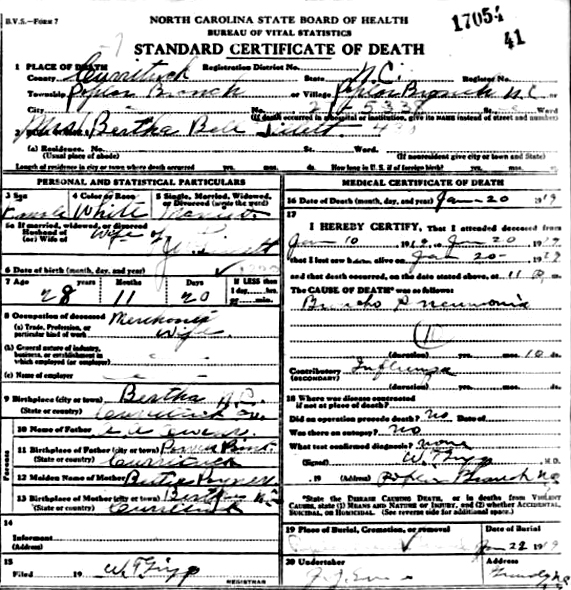 B.V.S.—FORM 7
NORTH CAROLINA STATE BOARD OF HEALTH
BUREAU OF VITAL STATISTICS
STANDARD CERTIFICATE OF DEATH
17054
41
1 PLACE OF DEATH Registration District No.
County Currituck State N.C. Register No.
Township Poplar Branch or Village Poplar Branch N.C. or
City No. St. Ward
(If death occurred in a hospital or institution, give its NAME instead of street and number)
Mrs. Bertha Bell
(a) Residence. No. St. Ward.
(Usual place of abode) (If nonresident give city or town and State)
Length of residence in city or town where death occurred yrs. mos. ds. How long in U. S. if of foreign birth? yrs. mos. ds.
PERSONAL AND STATISTICAL PARTICULARS
3 Sex 4 Color or Race 5 Single, Married, Widowed,
or Divorced (write the word)
Female White Married
5a If married, widowed, or divorced
Husband of
(or) Wife of
Wife of
6 Date of birth (month, day, and year)
7 Age Years Months Days If LESS than
1 day hrs.
or min.
28 11 20
8 Occupation of deceased
(a) Trade, Profession, or
particular kind of work
Wife
(b) General nature of industry,
business, or establishment in
which employed (or employer)
(c) Name of employer
9 Birthplace (city or town) Bertha N.C.
(State or country) Currituck Co.
10 Name of Father
11 Birthplace of Father (city or town)
(State or country) Currituck
12 Maiden Name of Mother
13 Birthplace of Mother (city or town) Bertha N.C.
(State or country) Currituck
Parents
14
Informant
(Address)
15
Filed 19 REGISTRAR
MEDICAL CERTIFICATE OF DEATH
16 Date of Death (month, day, and year) Jan 20 1919
17
I HEREBY CERTIFY, That I attended deceased from
Jan 10 1919, to Jan 20 1919
that I last saw alive on Jan 20 1919
and that death occurred, on the date stated above, at 11
The CAUSE OF DEATH* was as follows:
Broncho Pneumonia
(duration) yrs. mos. 10 ds.
Contributory Influenza
(SECONDARY)
(duration) yrs. mos. ds.
18 Where was disease contracted
if not at place of death?
Did an operation precede death? no Date of
Was there an autopsy? no
What test confirmed diagnosis? none
(Signed) M.D.
, 19 (Address) Poplar Branch N.C.
*State the DISEASE CAUSING DEATH, or in deaths from VIOLENT
CAUSES, state (1) MEANS AND NATURE OF INJURY, and (2) whether ACCIDENTAL,
SUICIDAL, or HOMICIDAL. (See reverse side for additional space).
19 Place of Burial, Cremation, or removal Date of Burial
Jan 22 1919
20 Undertaker Address